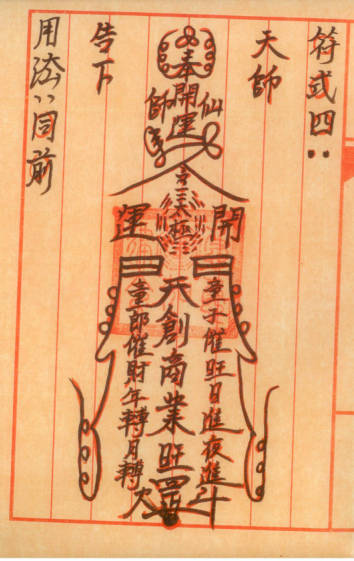 符式四：
天師
奉開運
仙師
太極
開運
童子催旺日進夜進
天創商業旺
童郎催財年轉月轉
告下
用法八同前